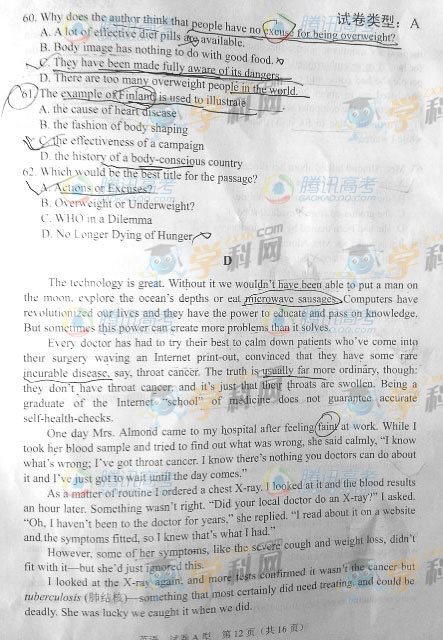 试卷类型：A
60. Why does the author think that people have no excuse for being overweight?
A. A lot of effective diet pills are available.
B. Body image has nothing to do with good food.
C. They have been made fully aware of its dangers.
D. There are too many overweight people in the world.
61. The example of Finland is used to illustrate
A. the cause of heart disease
B. the fashion of body shaping
C. the effectiveness of a campaign
D. the history of a body-conscious country
62. Which would be the best title for the passage?
A. Actions or Excuses?
B. Overweight or Underweight?
C. WHO in a Dilemma
D. No Longer Dying of Hunger
D
The technology is great. Without it we wouldn't have been able to put a man on
the moon, explore the ocean's depths or eat microwave sausages. Computers have
revolutionized our lives and they have the power to educate and pass on knowledge.
But sometimes this power can create more problems than it solves.
Every doctor has had to try their best to calm down patients who've come into
their surgery waving an Internet print-out, convinced that they have some rare
incurable disease, say, throat cancer. The truth is usually far more ordinary, though:
they don't have throat cancer, and it's just that their throats are swollen. Being a
graduate of the Internet "school" of medicine does not guarantee accurate
self-health-checks.
One day Mrs. Almond came to my hospital after feeling faint at work. While I
took her blood sample and tried to find out what was wrong, she said calmly, "I know
what's wrong; I've got throat cancer. I know there's nothing you doctors can do about
it and I've just got to wait until the day comes."
As a matter of routine I ordered a chest X-ray. I looked at it and the blood results
an hour later. Something wasn't right. "Did your local doctor do an X-ray?" I asked.
"Oh, I haven't been to the doctor for years," she replied. "I read about it on a website
and the symptoms fitted, so I knew that's what I had."
However, some of her symptoms, like the severe cough and weight loss, didn't
fit with it—but she'd just ignored this.
I looked at the X-ray again, and more tests confirmed it wasn't the cancer but
tuberculosis (肺结核)—something that most certainly did need treating, and could be
deadly. She was lucky we caught it when we did.
英语 试卷 A 型 第 12 页（共 16 页）